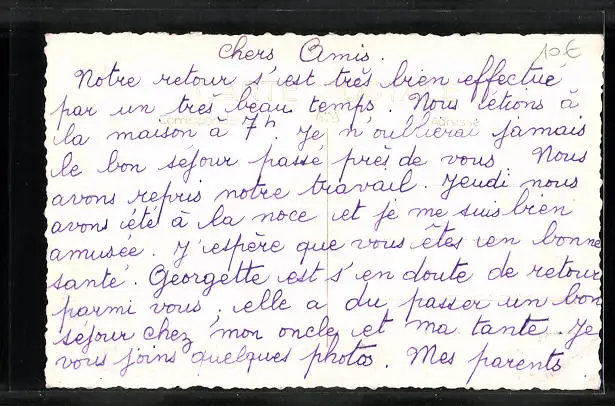 10€
Chers Amis.
Notre retour s'est très bien effectué
par un très beau temps. Nous étions à
la maison à 7h. Je n'oublierai jamais
le bon séjour passé près de vous Nous
avons repris notre travail. Jeudi nous
avons été à la noce et je me suis bien
amusée. J'espère que vous êtes en bonne
santé. Georgette est s'en doute de retour
parmi vous, elle a du passer un bon
séjour chez mon oncle et ma tante. Je
vous joins quelques photos. Mes parents